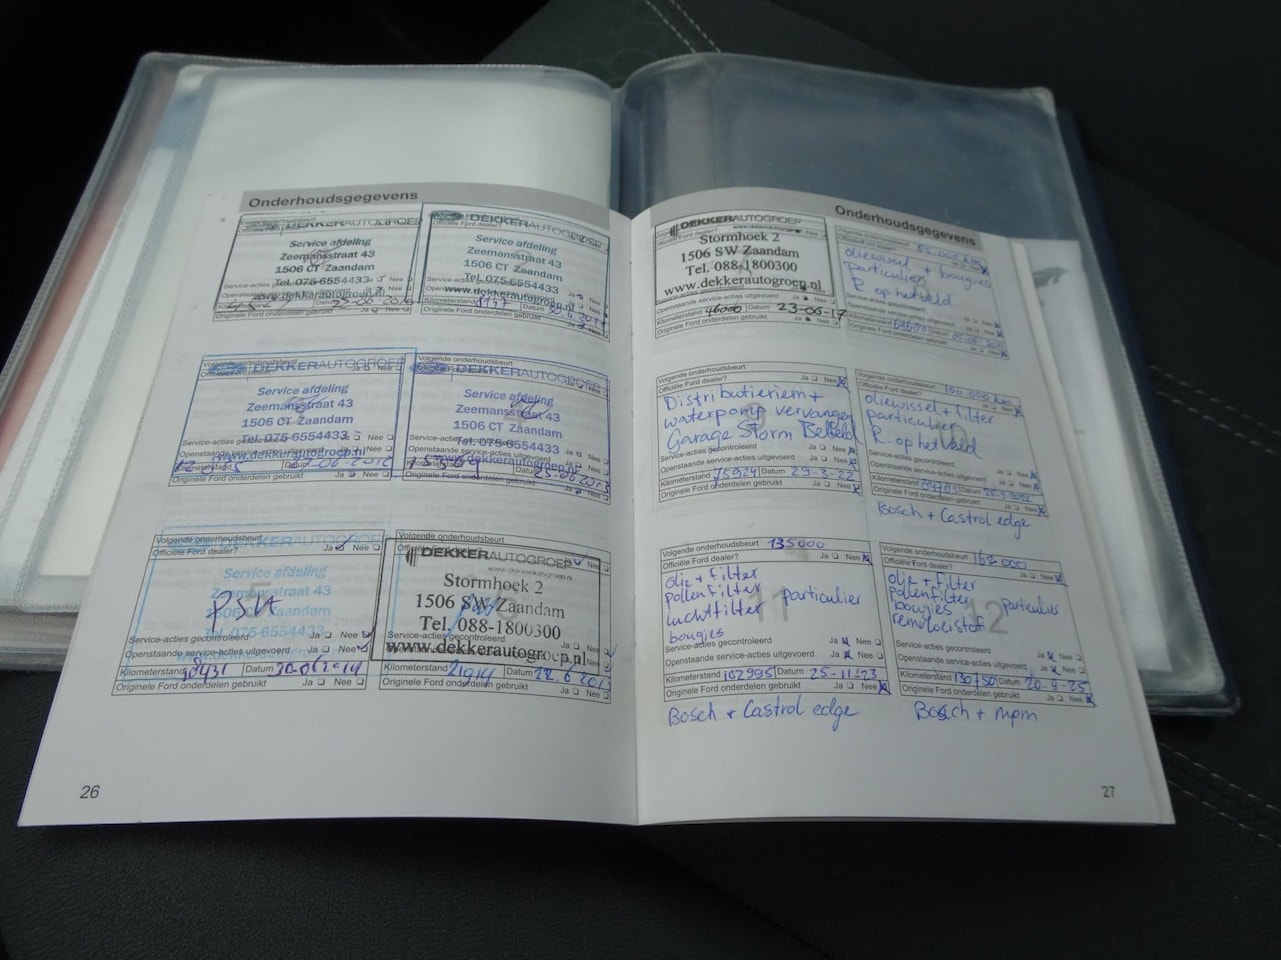 Onderhoudsgegevens
DEKKERAUTOGROEP
Service afdeling
Zeemansstraat 43
1506 CT Zaandam
Tel. 075-6554433
www.dekkerautogroep.nl
Originele Ford onderdelen gebruikt Ja Nee
DEKKERAUTOGROEP
Officiële Ford dealer?
Service afdeling
Zeemansstraat 43
1506 CT Zaandam
Tel. 075-6554433
www.dekkerautogroep.nl
Kilometerstand
Originele Ford onderdelen gebruikt
Volgende onderhoudsbeurt
DEKKERAUTOGROEP
Service afdeling
Zeemansstraat 43
1506 CT Zaandam
Tel. 075-6554433
www.dekkerautogroep.nl
Kilometerstand Datum
Originele Ford onderdelen gebruikt Ja Nee
Volgende onderhoudsbeurt
DEKKERAUTOGROEP
Service afdeling
Zeemansstraat 43
1506 CT Zaandam
Tel. 075-6554433
www.dekkerautogroep.nl
Originele Ford onderdelen gebruikt Ja Nee
Volgende onderhoudsbeurt
DEKKERAUTOGROEP
Officiële Ford dealer? Ja Nee
Service afdeling
Zeemansstraat 43
1506 CT Zaandam
Tel. 075-6554433
Service-acties gecontroleerd Ja Nee
Openstaande service-acties uitgevoerd Ja Nee
Kilometerstand Datum
Originele Ford onderdelen gebruikt Ja Nee
Volgende onderhoudsbeurt
DEKKERAUTOGROEP
Stormhoek 2
1506 SW Zaandam
Tel. 088-1800300
www.dekkerautogroep.nl
Kilometerstand 21914 Datum
Originele Ford onderdelen gebruikt Ja Nee
26
Onderhoudsgegevens
DEKKERAUTOGROEP
Stormhoek 2
1506 SW Zaandam
Tel. 088-1800300
www.dekkerautogroep.nl
Openstaande service-acties uitgevoerd Ja Nee
Kilometerstand 46000 Datum 23-06-17
Originele Ford onderdelen gebruikt Ja Nee
Volgende onderhoudsbeurt
oliewissel + bougies
particulier
R. op het Veld
Kilometerstand Datum
Originele Ford onderdelen gebruikt Ja Nee
Volgende onderhoudsbeurt
Officiële Ford dealer? Ja Nee
Distributieriem +
waterpomp vervangen
Garage Storm Belfeld
Service-acties gecontroleerd
Openstaande service-acties uitgevoerd
Kilometerstand 75924 Datum 29-3-22
Originele Ford onderdelen gebruikt Ja Nee
Volgende onderhoudsbeurt 100 000 km
Officiële Ford dealer? Ja Nee
oliewissel + filter
particulier
R. op het Veld
Service-acties gecontroleerd Ja Nee
Openstaande service-acties uitgevoerd Ja Nee
Kilometerstand Datum
Originele Ford onderdelen gebruikt Ja Nee
Bosch + Castrol edge
Volgende onderhoudsbeurt 135000
Officiële Ford dealer? Ja Nee
olie + filter
pollenfilter particulier
luchtfilter
bougies
11
Service-acties gecontroleerd Ja Nee
Openstaande service-acties uitgevoerd Ja Nee
Kilometerstand 102995 Datum 25-11-23
Originele Ford onderdelen gebruikt Ja Nee
Bosch + Castrol edge
Volgende onderhoudsbeurt 162000
Officiële Ford dealer? Ja Nee
olie + filter
pollenfilter
bougies particulier
remvloeistof
12
Service-acties gecontroleerd Ja Nee
Openstaande service-acties uitgevoerd Ja Nee
Kilometerstand 130750 Datum
Originele Ford onderdelen gebruikt Ja Nee
Bosch + mpm
27